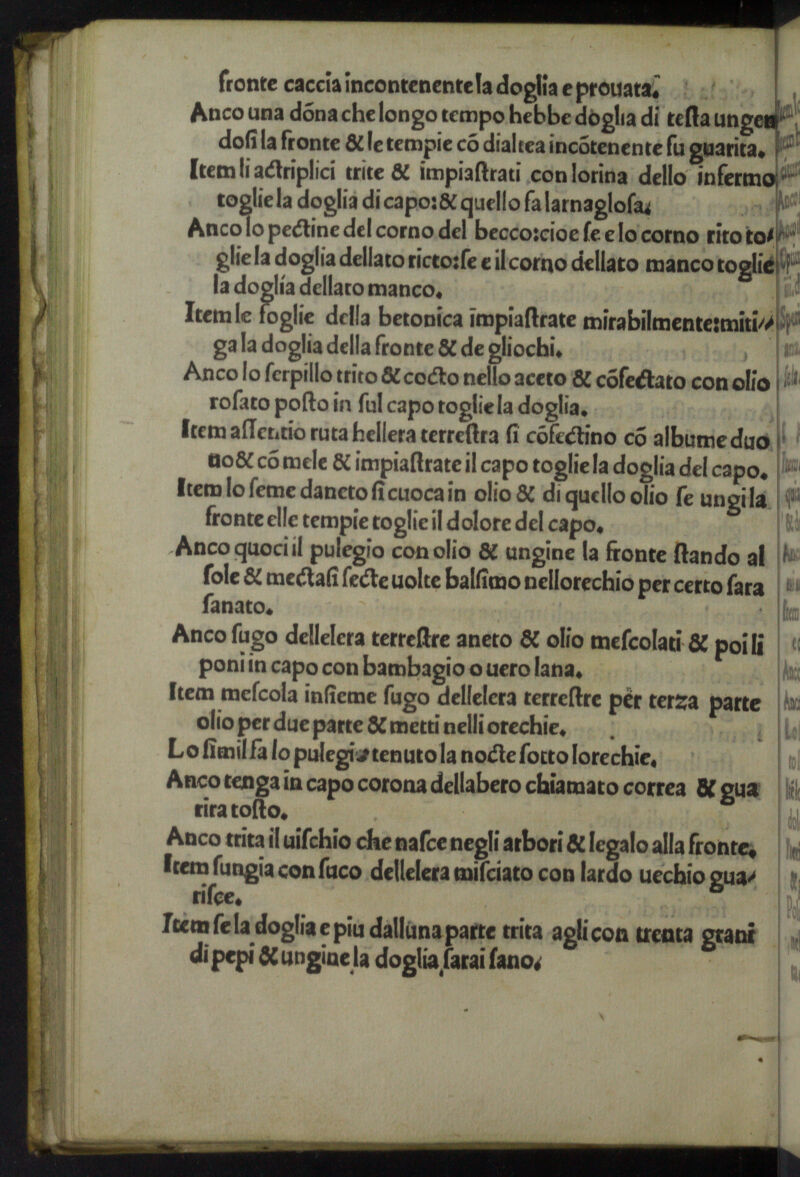 fronte caccia incontenente la doglia e prouata.
Anco una dōna che longo tempo hebbe doglia di testa ungen
dosi la fronte & le tempie cō dialtea incōtenente fu guarita.
Item li actriplici trite & impiastrati con lorina dello infermo
toglie la doglia di capo: & quello fa larnaglosa.
Anco lo pectine del corno del becco: cioe se e lo corno rito to/
glie la doglia dellato ricto: se e il corno dellato manco toglie
la doglia dellato manco.
Item le foglie della betonica impiastrate mirabilmente: miti/
ga la doglia della fronte & de gliochi.
Anco lo serpillo trito & cocto nello aceto & cōfectato con olio
rosato posto in sul capo toglie la doglia.
Item assentio ruta hellera terrestra si cōfectino cō albume duo
uo & cō mele & impiastrate il capo toglie la doglia del capo.
Item lo seme daneto si cuoca in olio & di quello olio se ungi la
fronte elle tempie toglie il dolore del capo.
Anco quoci il pulegio con olio & ungine la fronte stando al
sole & mectasi secte uolte balsimo nellorechio per certo sara
sanato.
Anco sugo dellelera terrestre aneto & olio mescolati & poi li
poni in capo con bambagio o uero lana.
Item mescola insieme sugo dellelera terrestre per terza parte
olio per due parte & metti nelli orechie.
Lo simil fa lo pulegio tenuto la nocte sotto lorechie.
Anco tenga in capo corona dellabero chiamato correa & gua
rira tosto.
Anco trita il uischio che nasce negli arbori & legalo alla fronte.
Item fungia con suco dellelera misciato con lardo uechio gua/
risce.
Item se la doglia e piu dalluna parte trita agli con trenta grani
di pepi & ungine la doglia sarai sano.